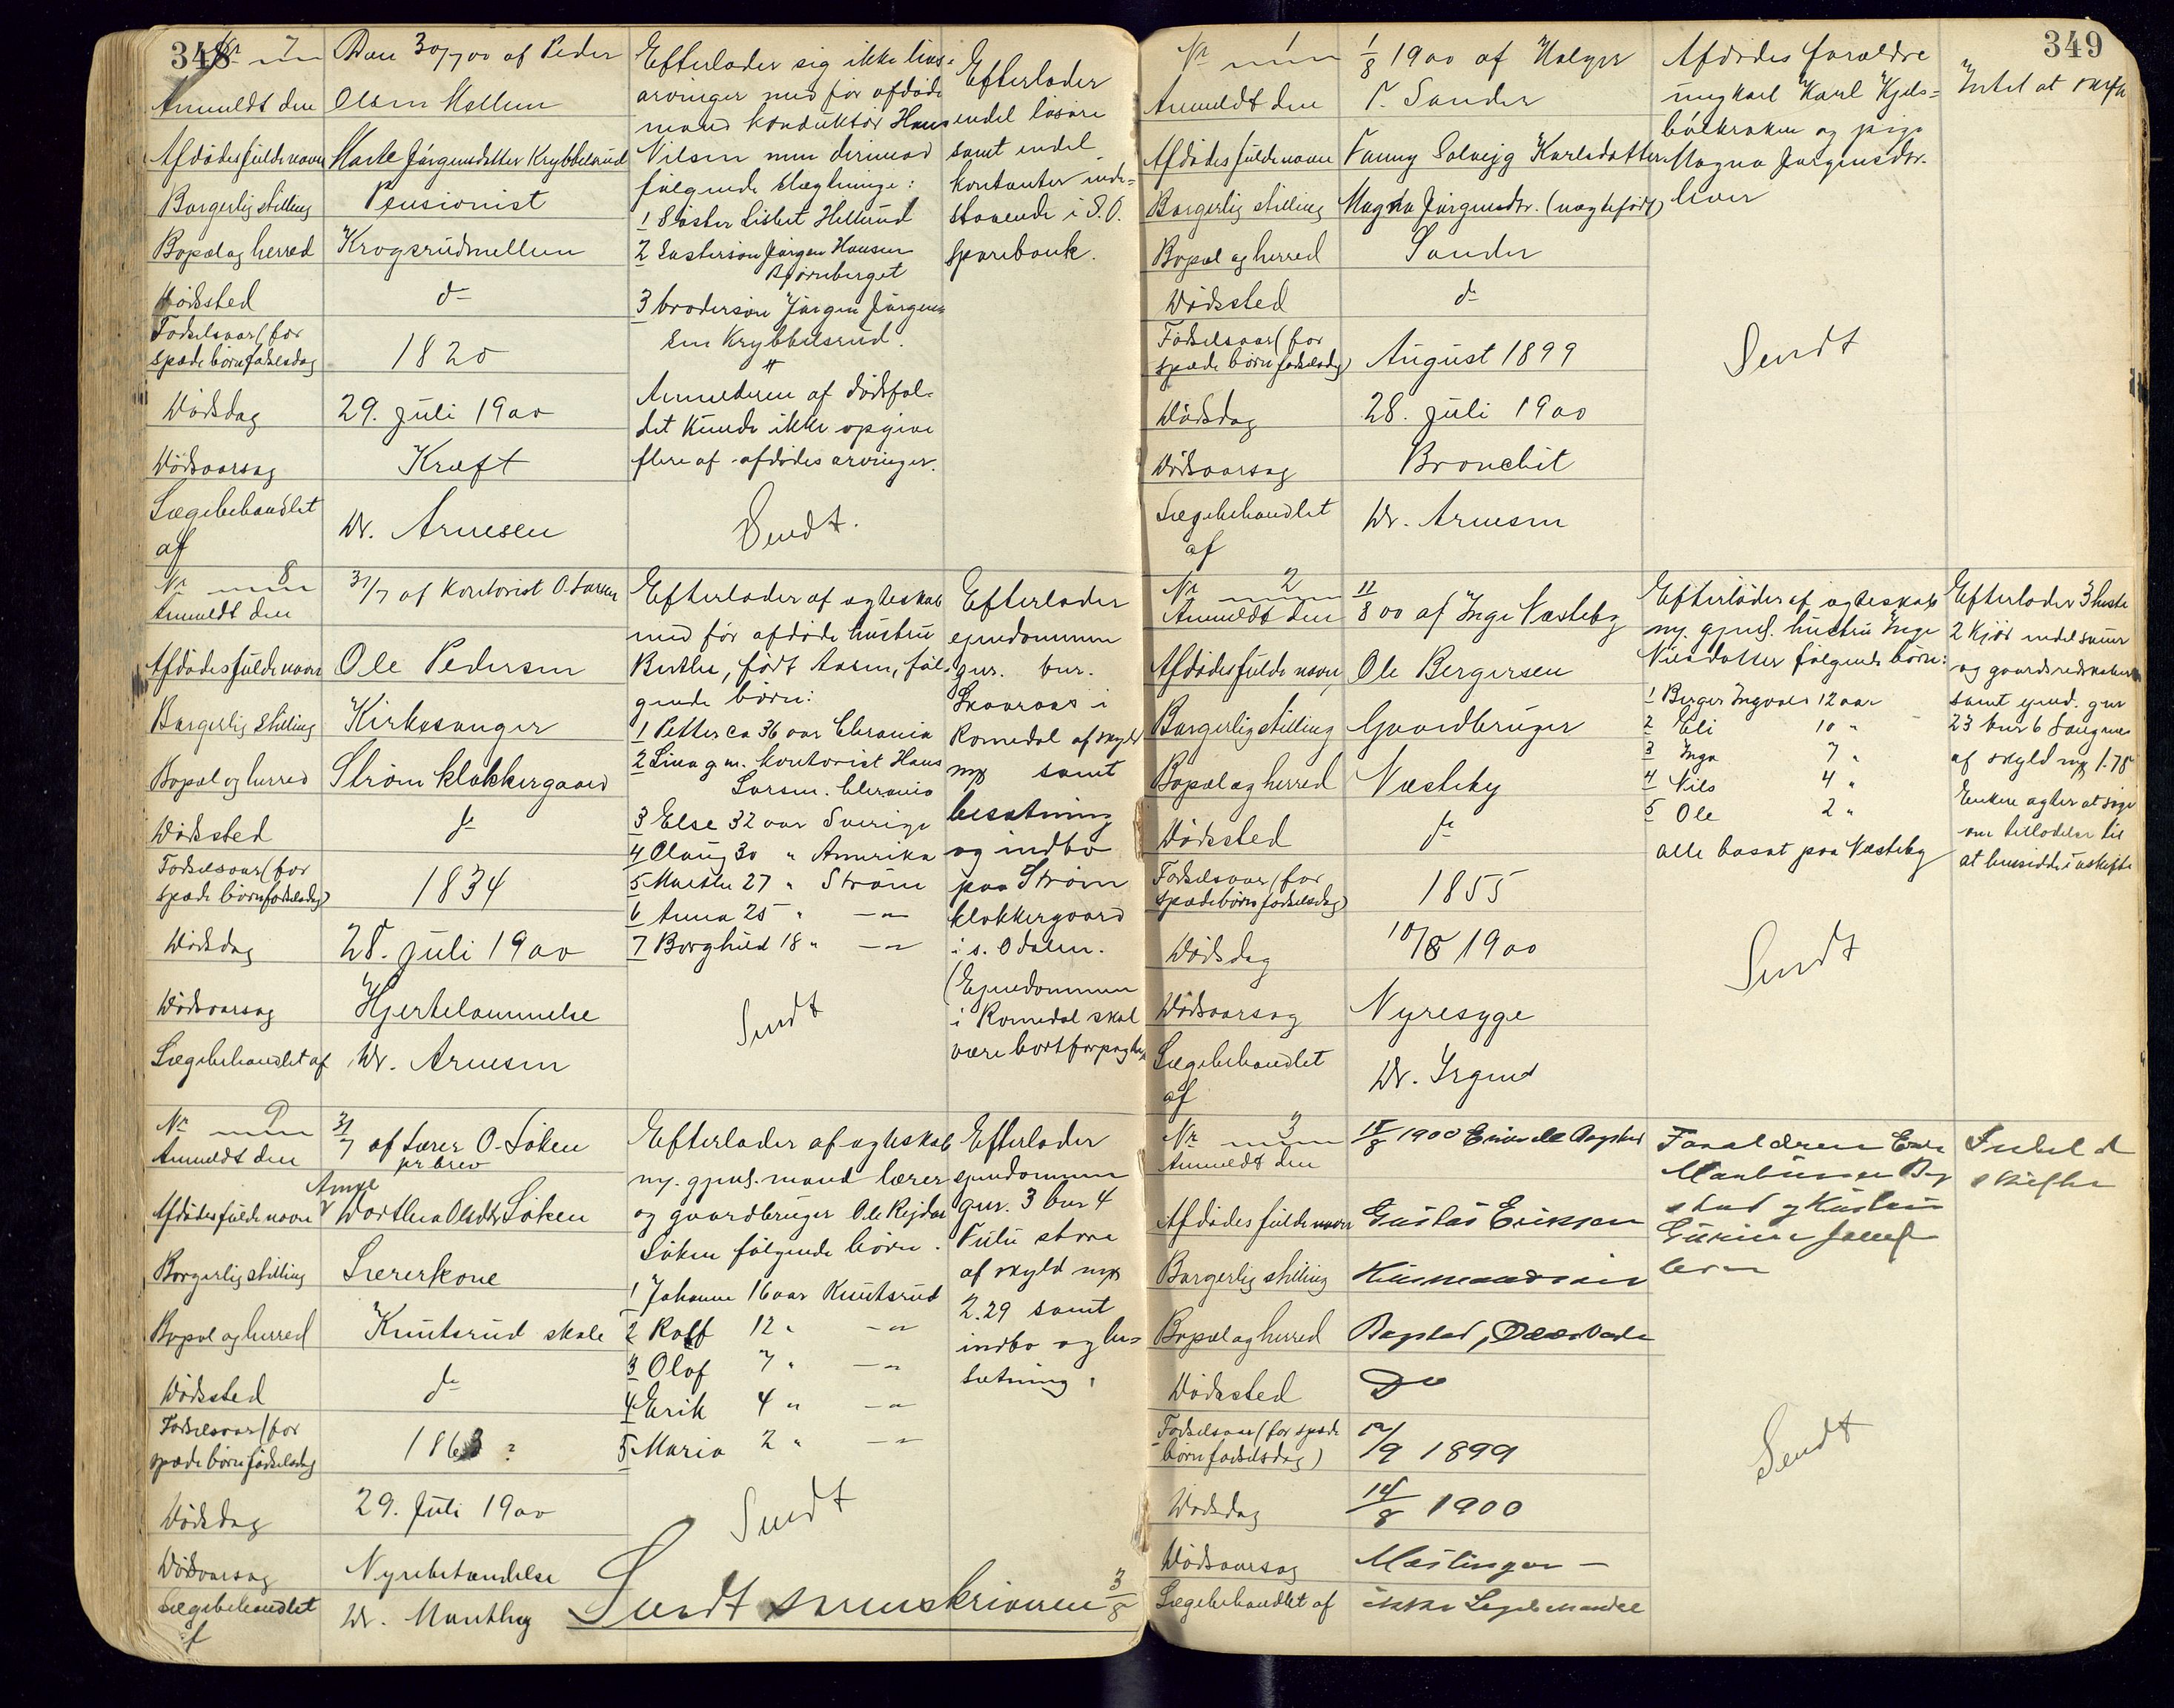 348
Nr 7
Anmeldt den
Den 30/7 00 af Peder
Olsen Mellem
Afdødes fulde navn
Marte Jørgensdatter Krybbelsrud
Borgerlig stilling
Pensionist
Bopæl og herred
Krogsrudmellem
Dødssted
do
Fødselsaar (for
spæde børn fødselsdag
1820
Dødsdag
29. juli 1900
Dødsaarsag
Kræft
Lægebehandlet
af
Dr. Arnesen
Efterlader sig ikke livs-
arvinger med før afdøde
mand konduktør Hans
Nilsen men derimod
følgende slægtninge:
1 Søster Lisbet Hellerud
2 Søstersøn Jørgen Hansen
Bjørneberget
3 brodersøn Jørgen Jørgen-
sen Krybbelsrud.
Anmelderen af dødsfal-
det kunde ikke opgive
flere af afdødes arvinger.
Sendt.
Efterlader
endel løsøre
samt endel
kontanter inde-
staaende i S. O.
sparebank.
Nr 8
Anmeldt den
31/7 af kontorist O. Larsen
Afdødes fulde navn
Ole Pedersen
Borgerlig stilling
Kirkesanger
Bopæl og herred
Strøm klokkergaard
Dødssted
do
Fødselsaar (for
spæde børn fødselsdag)
1834
Dødsdag
28. juli 1900
Dødsaarsag
Hjertelammelse
Lægebehandlet af
Dr. Arnesen
Efterlader af ægteskab
med før afdøde hustru
Berthe, født Aasen, føl-
gende børn:
1 Petter ca 36 aar Chrania
2 Lina g. m. kontorist Hans
Larsen. Chrania
3 Else 32 aar Sverige
4 Olaug 30 " Amerika
5 Marthe 27 " Strøm
6 Anna 25 " — " —
7 Borghild 18 " — " —
Sendt
Efterlader
ejendommen
gnr. bnr.
Skaaraas i
Romedal af skyld
mk samt
besætning
og indbo
paa Strøm
klokkergaard
i s. Odalen.
(Ejendommen
i Romedal skal
være bortforpagtet
Nr 9
Anmeldt den
31/7 af Lærer O. Løken
pr brev
Afdødes fulde navn
Dorthea Olsdtr Løken
Borgerlig stilling
Lærerkone
Bopæl og herred
Knutsrud skole
Dødssted
do
Fødselsaar (for
spæde børn fødselsdag
1863 ?
Dødsdag
29. Juli 1900
Dødsaarsag
Nyrebetændelse
Lægebehandlet
af
Dr. Manthey
Efterlader af ægteskab
m. gjenl. mand lærer
og gaardbruger Ole Rejdar
Løken følgende børn.
1 Johanne 16 aar Knutsrud
2 Rolf 12 " — " —
3 Olaf 7 " — " —
4 Erik 4 " — " —
5 Maria 2 " — " —
Sendt
Efterlader
ejendommen
gnr. 3 bnr 4
Fulu store
af skyld mk
2.29 samt
indbo og be-
sætning.
Sendt sorenskriveren 3/8
349
Nr 1
Anmeldt den
1/8 1900 af Holger
T. Sander
Afdødes fulde navn
Fanny Solvejg Karlsdatter.
Borgerlig stilling
Magna Jørgensdtr. (uægtefødt)
Bopæl og herred
Sander
Dødssted
do
Fødselsaar (for
spæde børn fødselsdag)
August 1899
Dødsdag
28. juli 1900
Dødsaarsag
Bronchit
Lægebehandlet
af
Dr. Arnesen
Afdødes forældre
ungkarl Karl Kjels-
bølkroken og pige
Magna Jørgensdtr.
lever
Sendt
Intet at skifte
Nr 2
Anmeldt den
11/8 00 af Inge Næsteby
Afdødes fulde navn
Ole Bergersen
Borgerlig stilling
Gaardbruger
Bopæl og herred
Næsteby
Dødssted
do
Fødselsaar (for
spæde børn fødselsdag)
1855
Dødsdag
10/8 1900
Dødsaarsag
Nyresyge
Lægebehandlet
af
Dr. Irgens
Efterlader af ægteskab
m. gjenl. hustru Inge
Nilsdatter følgende børn:
1 Berger Ingvald 12 aar
2 Eli 10 "
3 Inga 7 "
4 Nils 4 "
5 Ole 2 "
alle bosat paa Næsteby
Sendt
Efterlader 3 heste
2 kjør endel smaa
og gaardsredskaber
samt ejend. gnr
23 bnr 6
af skyld mk 1.78
Enken agter at søge
om tilladelse til
at hensidde i uskifte
Nr 3
Anmeldt den
15/8 1900
Afdødes fulde navn
Gustav Eriksen
Borgerlig stilling
Husmandssøn
Bopæl og herred
Dødssted
Do
Fødselsaar (for spæde
børn fødselsdag)
12/9 1899
Dødsdag
14/8 1900
Dødsaarsag
Mæslinger —
Lægebehandlet af
ikke Lægebehandlet
Forældrene
Sendt
Intet at
skifte